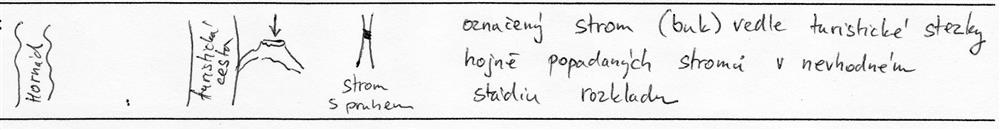 Hornád
turistická
cesta
strom
s pruhem
označený strom (buk) vedle turistické stezky
hojně popadaných stromů v nevhodném
stádiu rozkladu